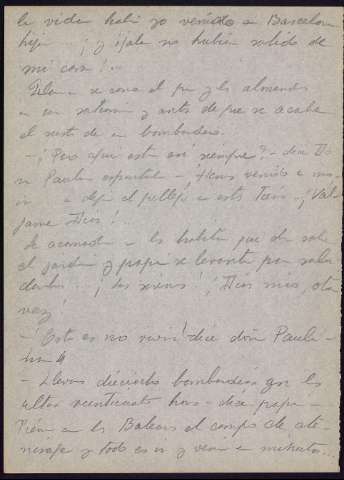 la vida habi yo venido a Barcelona
hija ¡y ojala no hubiera salido de
mi casa!...
se cena el pan y las almendras
en un y antes de que se acabe
el susto de un bombardeo.
- ¡Pero aqui estan asi siempre? - dice Do
ña Paulina espantada - Hemos venido a
a dejar el pellejo en esta ¡Val-
game Dios!...
la acomoda en la habitacion que da sobre
el jardin y papa se levanta para
darla... ¡las sirenas! ¡Dios mio, otra
vez!
- ¡Esto es no vivir! dice doña Pauli-
na
- Llevamos dieciocho bombardeos en las
ultimas veinticuatro horas - dice papa -
Tienen en las Baleares el campo de ate-
rrizaje y todo es ir y venir en minutos...